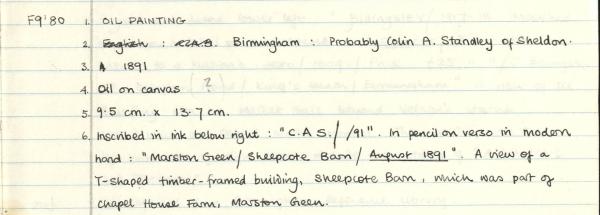 F9'80 1. OIL PAINTING
2. English : Birmingham : Probably Colin A. Standley of Sheldon.
3. 1891
4. Oil on canvas (?
5. 9.5 cm. x 13.7 cm.
6. Inscribed in ink below right : "C.A.S./ /91". In pencil on verso in modern
hand : "Marston Green/ Sheepcote Barn/ August 1891". A view of a
T-shaped timber-framed building, Sheepcote Barn, which was part of
Chapel House Farm, Marston Green.